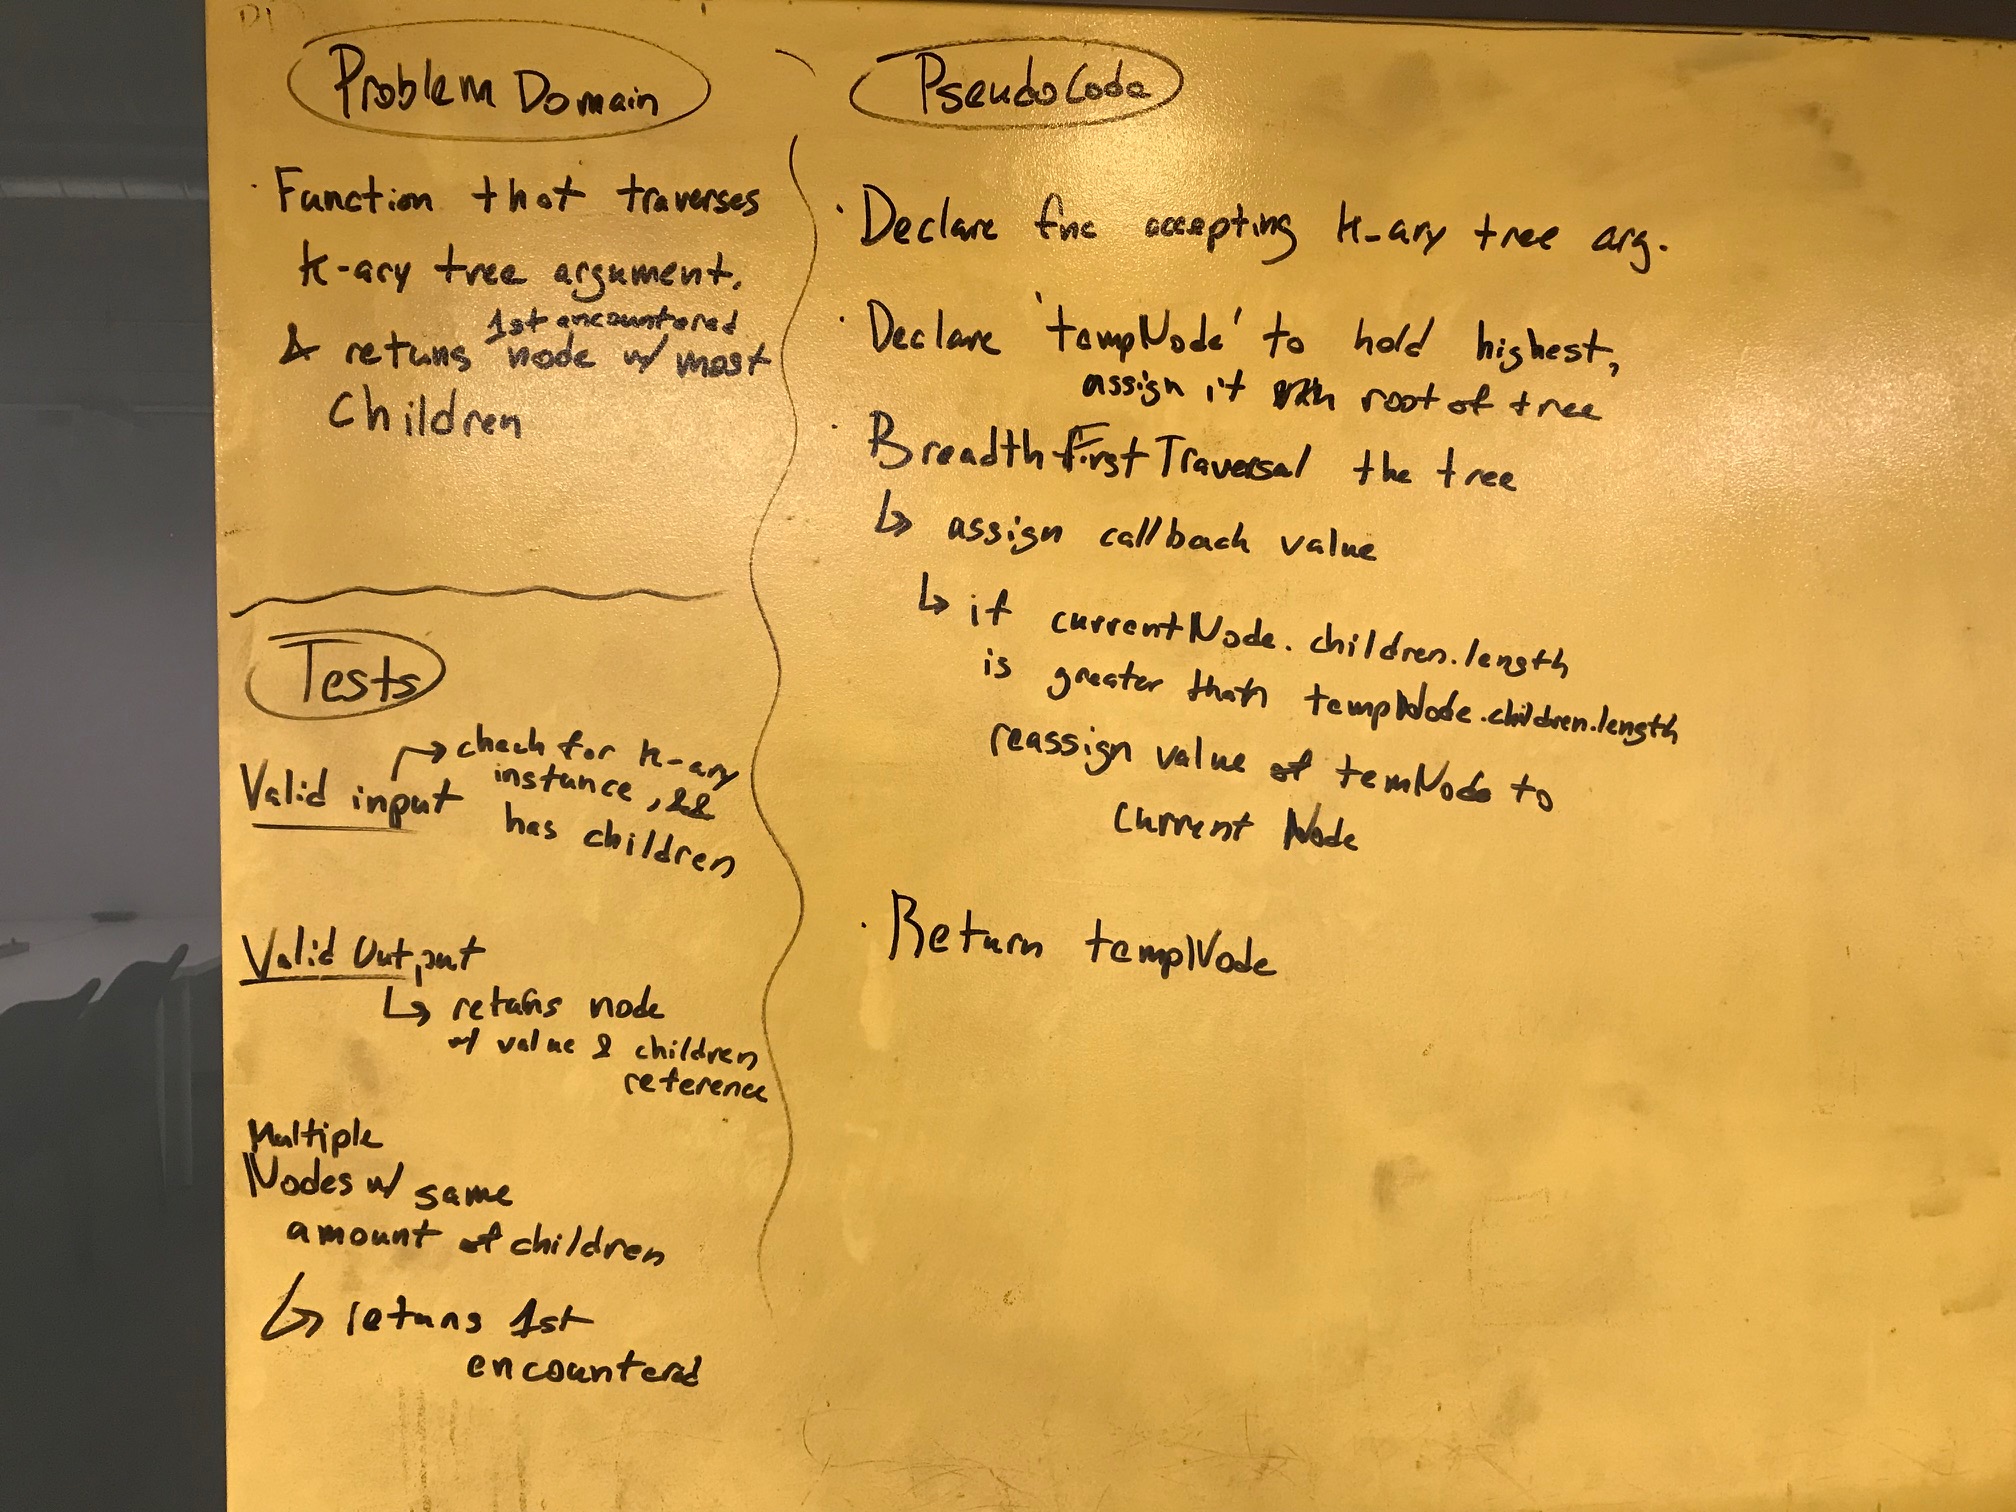 Problem Domain
· Function that traverses
k-ary tree argument,
1st encountered
& retuns node w/ most
Children
Tests
Valid input → check for k-ary
instance, &&
has children
Valid Output
↳ retuns node
w/ value & children
reference
Multiple
Nodes w/ same
amount of children
↳ retuns 1st
encountered
PseudoCode
· Declare fnc accepting k-ary tree arg.
· Declare 'tempNode' to hold highest,
assign it root of tree
· BreadthFirstTraversal the tree
↳ assign callback value
↳ if currentNode.children.length
is greater than tempNode.children.length
reassign value of temNode to
current Node
· Return tempNode